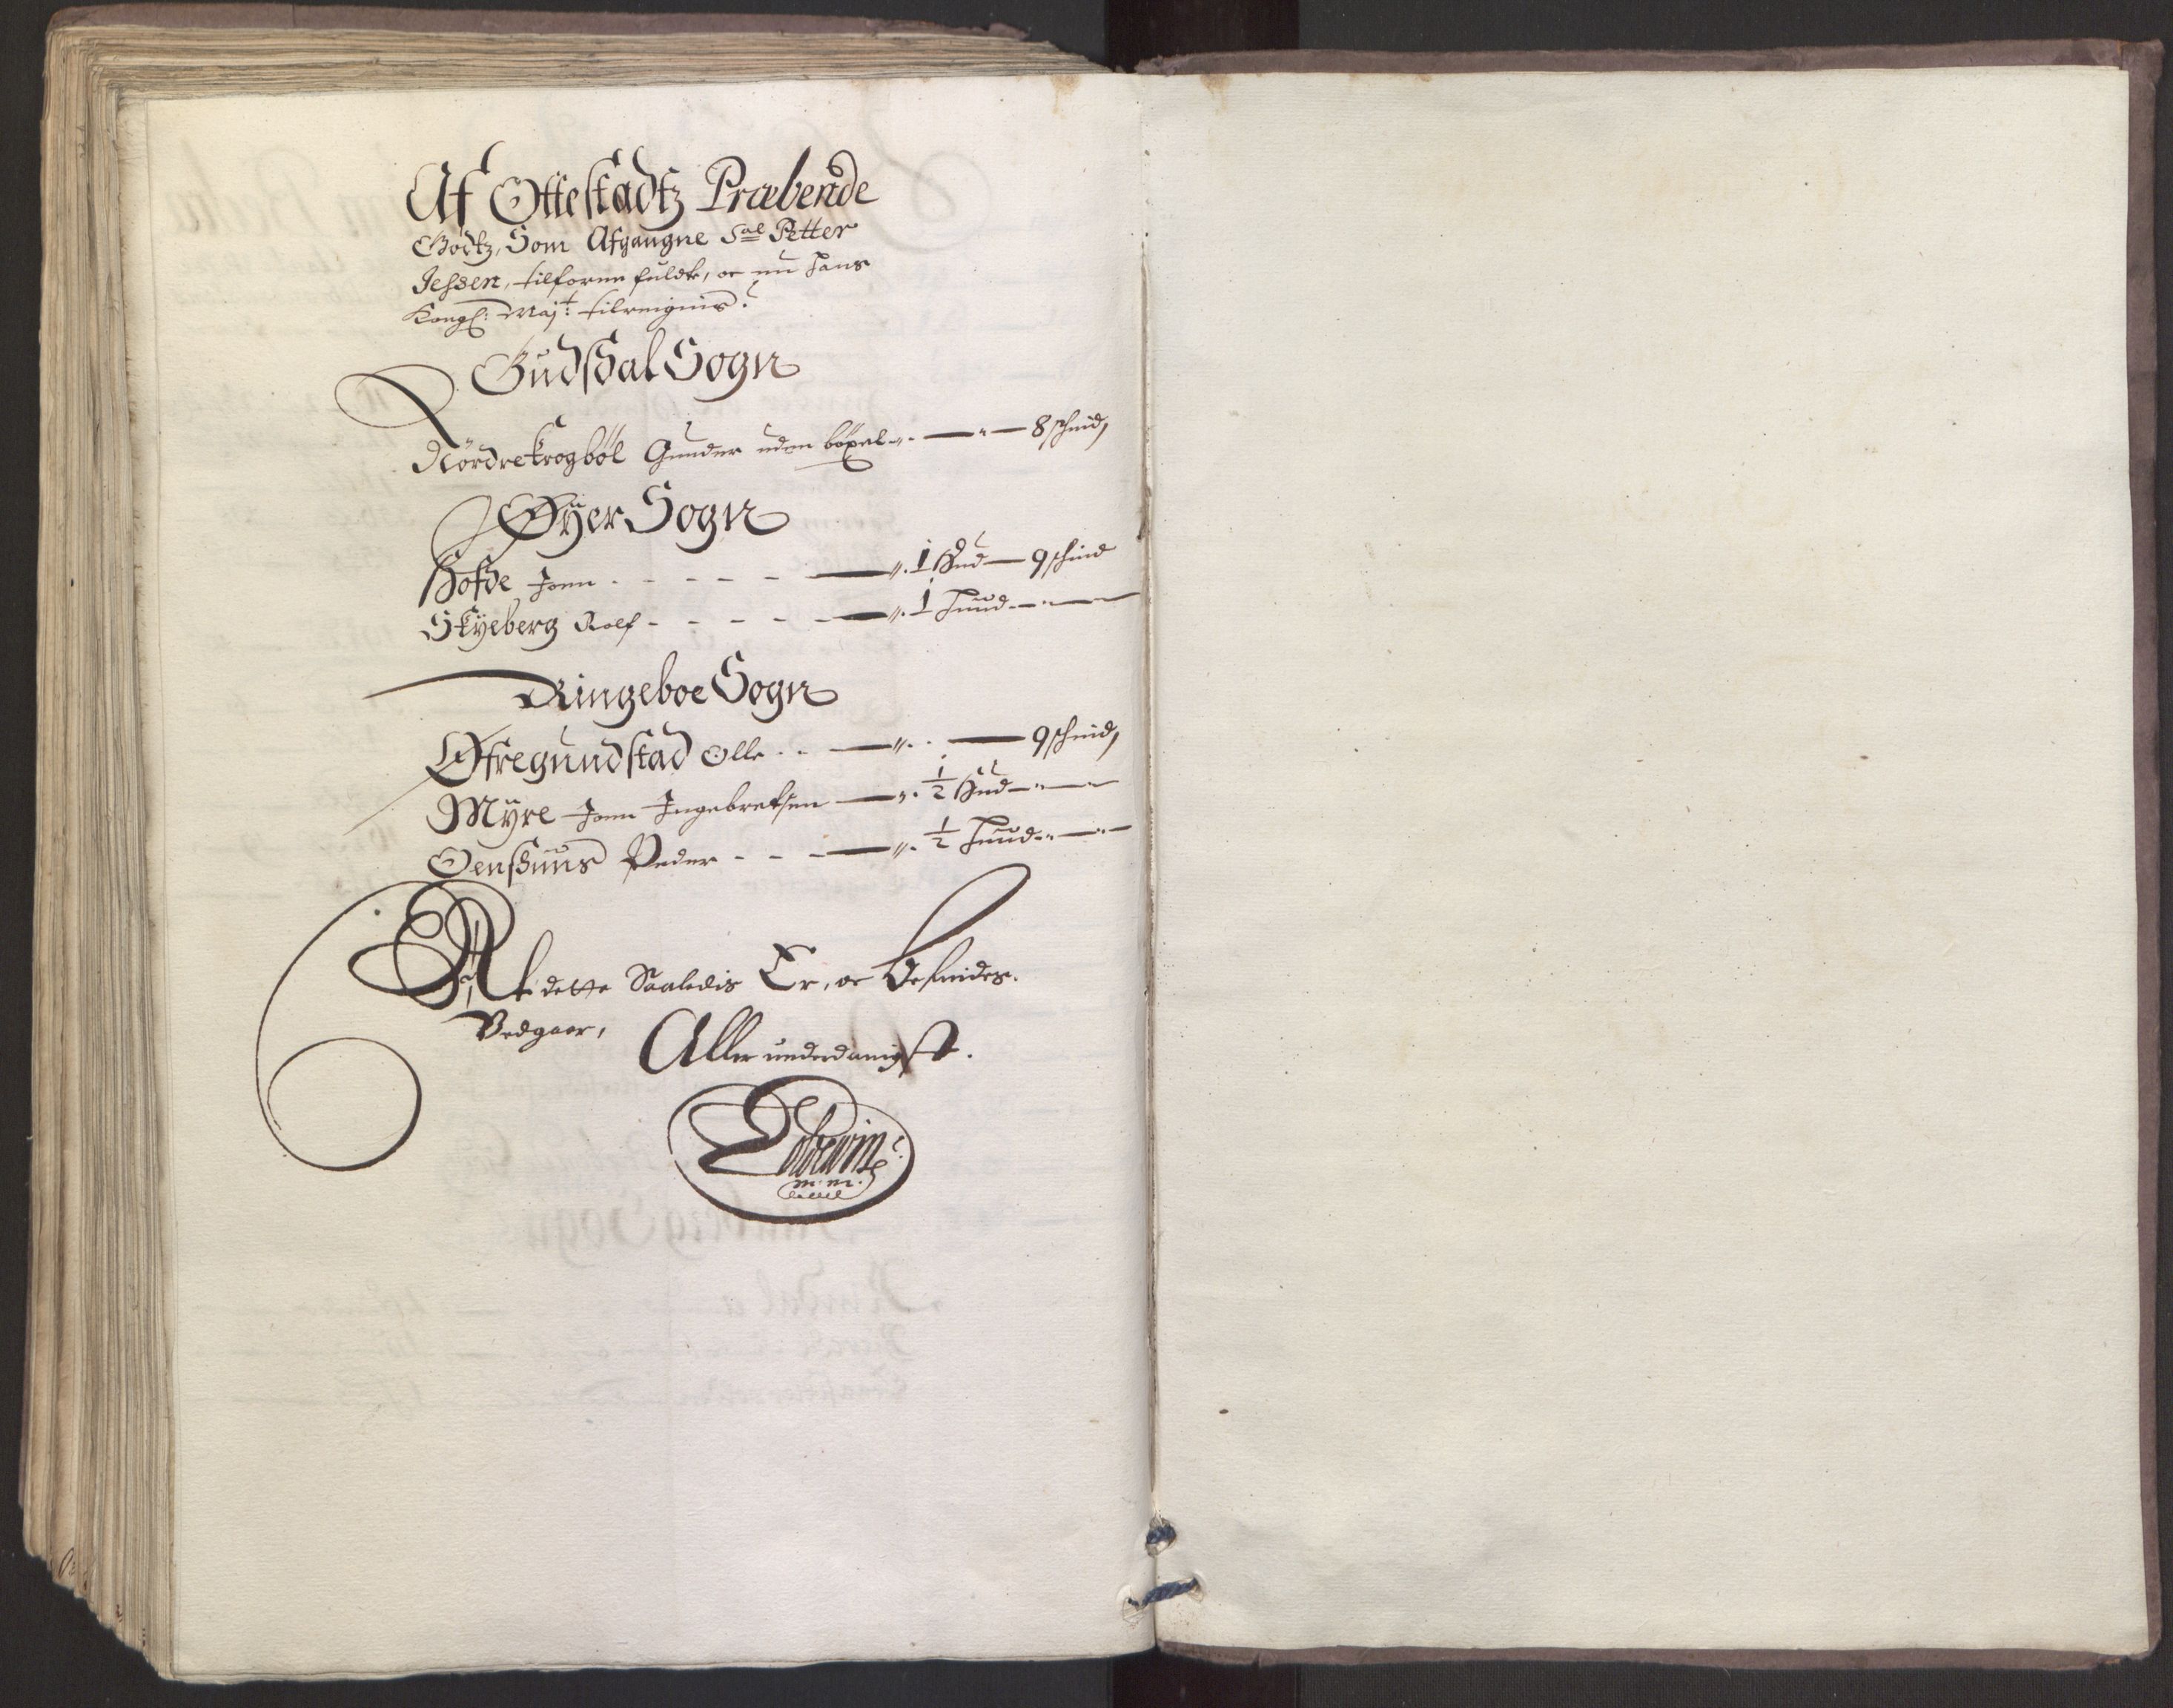 Af Ottestadtz Præbende
Godtz, Som Afgangne Sal Petter
Jessen, tilforne fuldte, oc nu Hans
Kongl: Maj:t tileignis.
Gudsdal Sogn
Nördre Krogböl Gunder uden böxel 8 schind,
Øÿer Sogn
Hofde Joen 1 Hud 9 schind
Skÿeberg Rolf 1 Huud
Ringeboe Sogn
Øfregundstad Olle 9 schind,
Mÿre Joen Ingebretsen ½ Hud
Oensuus Peder ½ Huud
At dette Saaledis Er, oc befindes.
Vedgaar,
Aller underdanigst.
m:m: